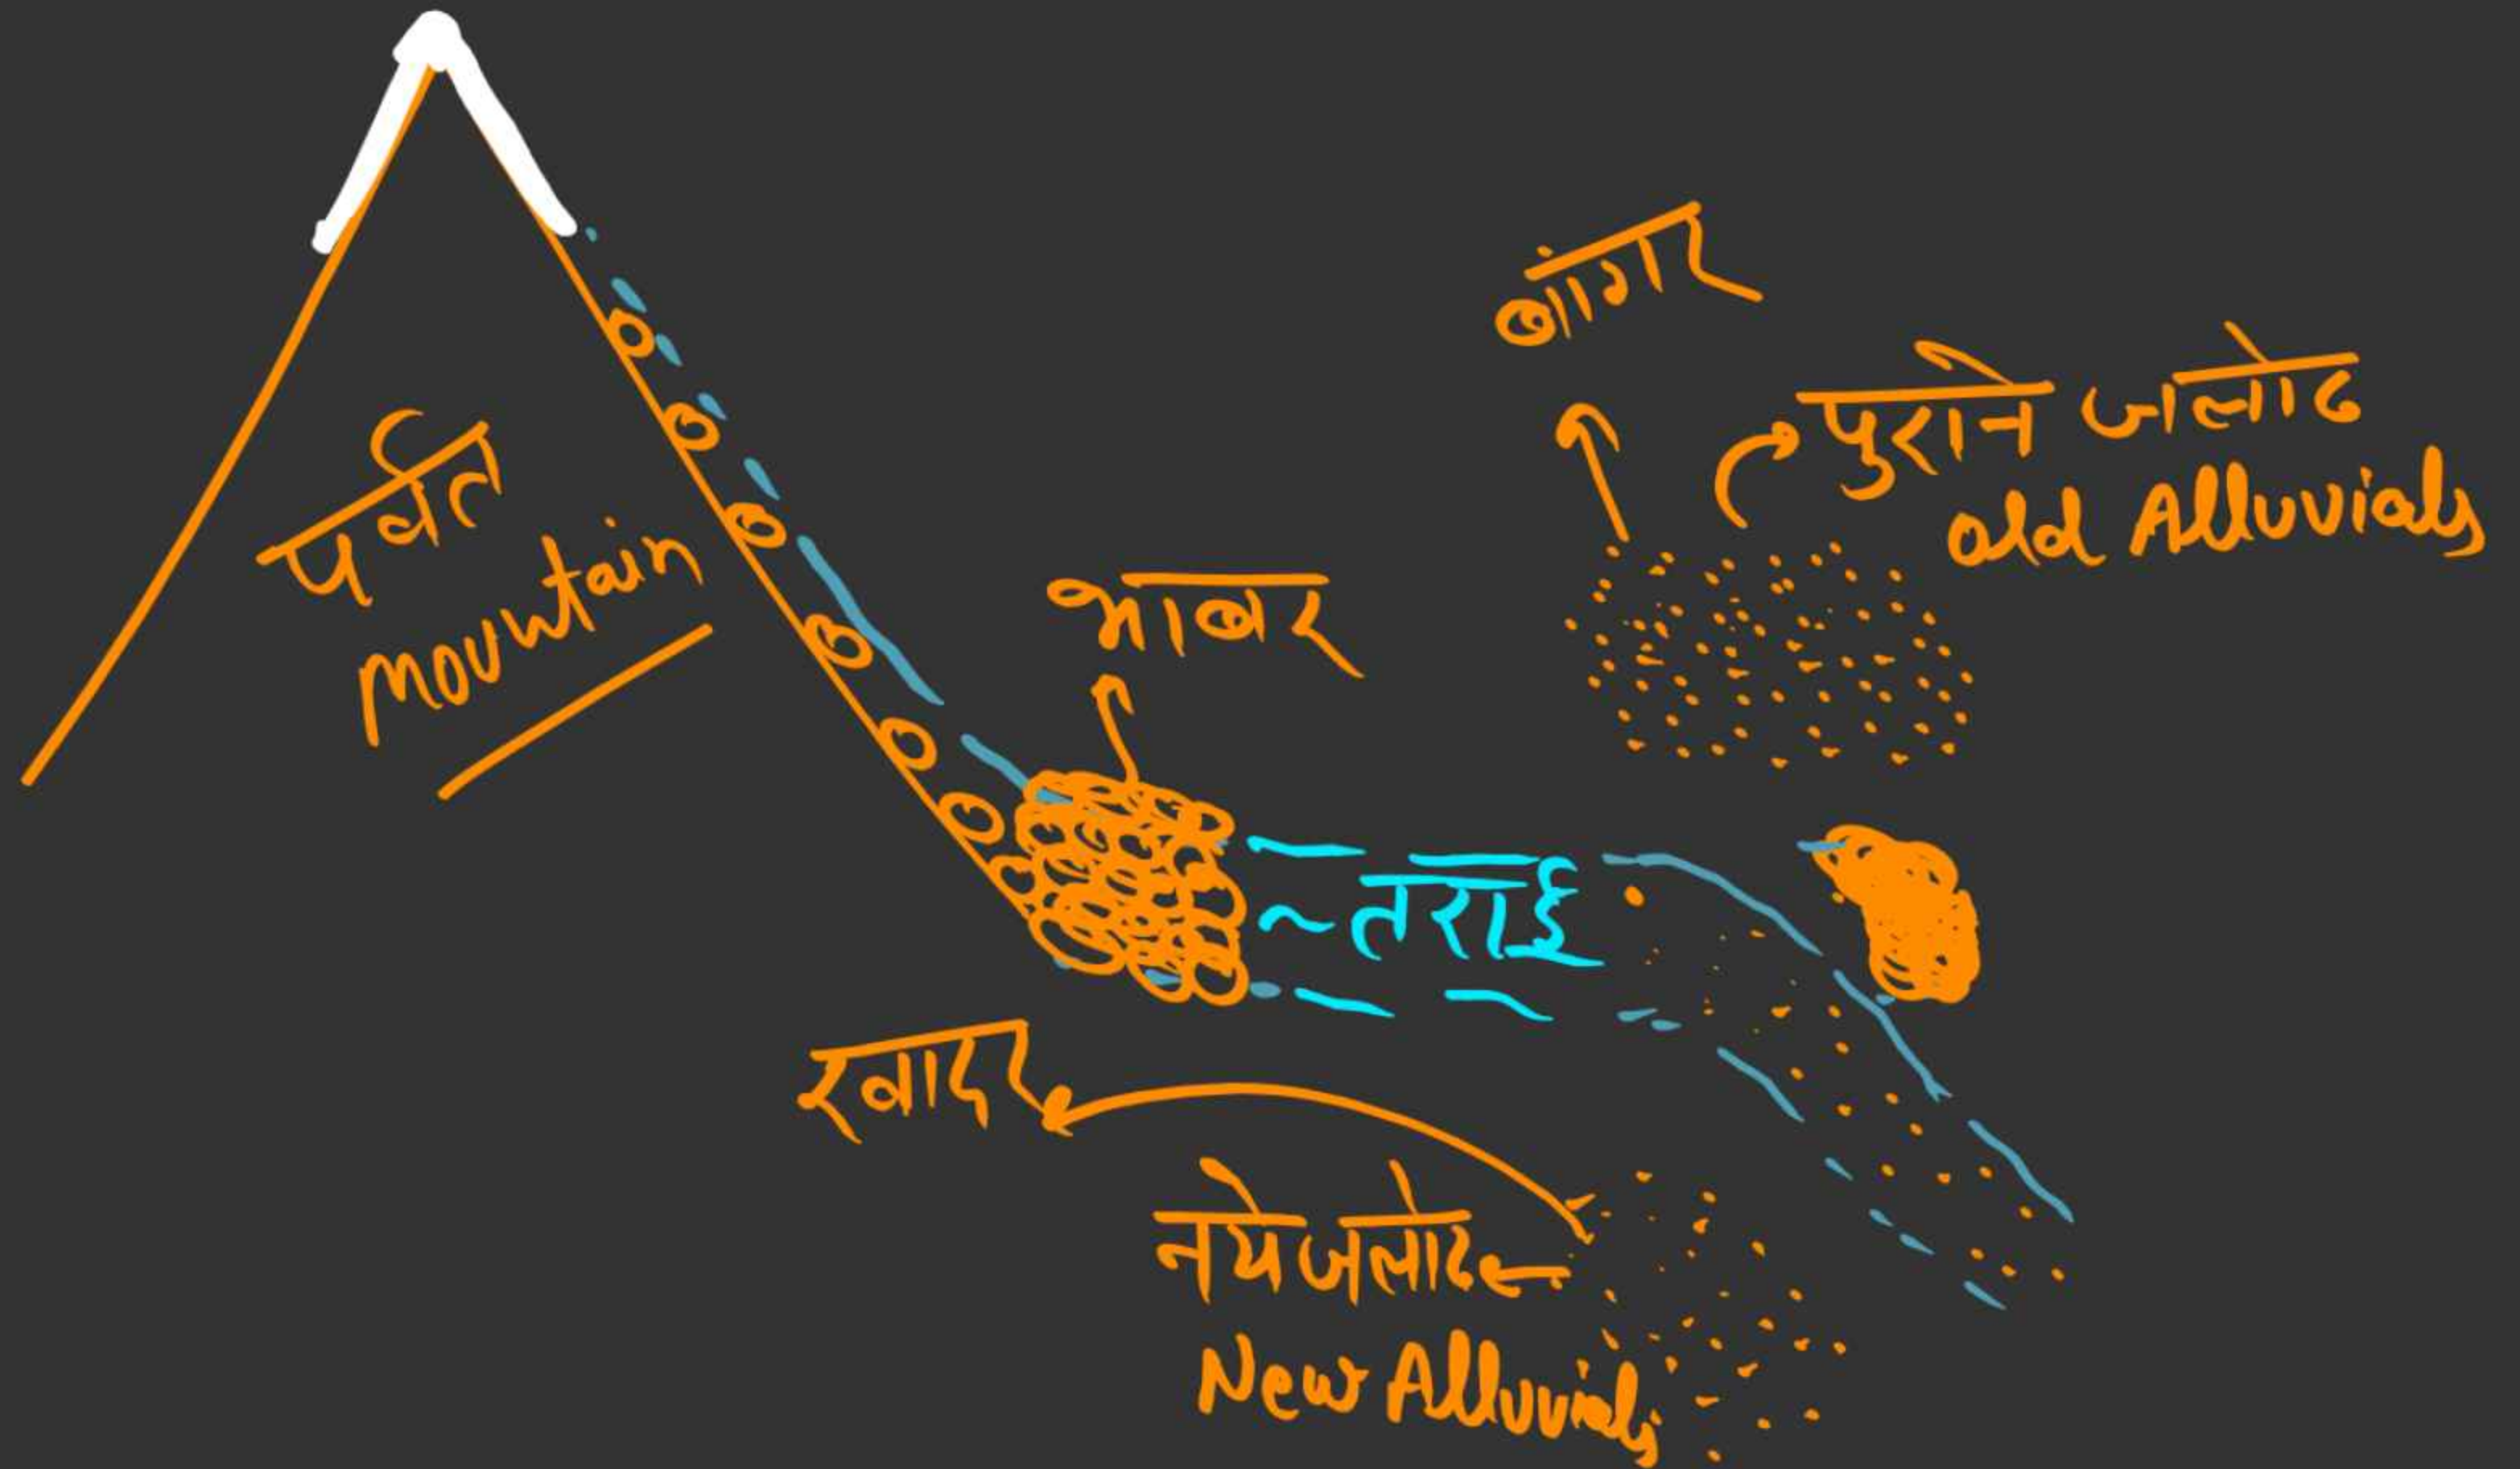 पर्वत
Mountain
भाबर
बांगर
पुराने जलोढ
old Alluvials
~तराई
खादर
नये जलोढ
New Alluvials